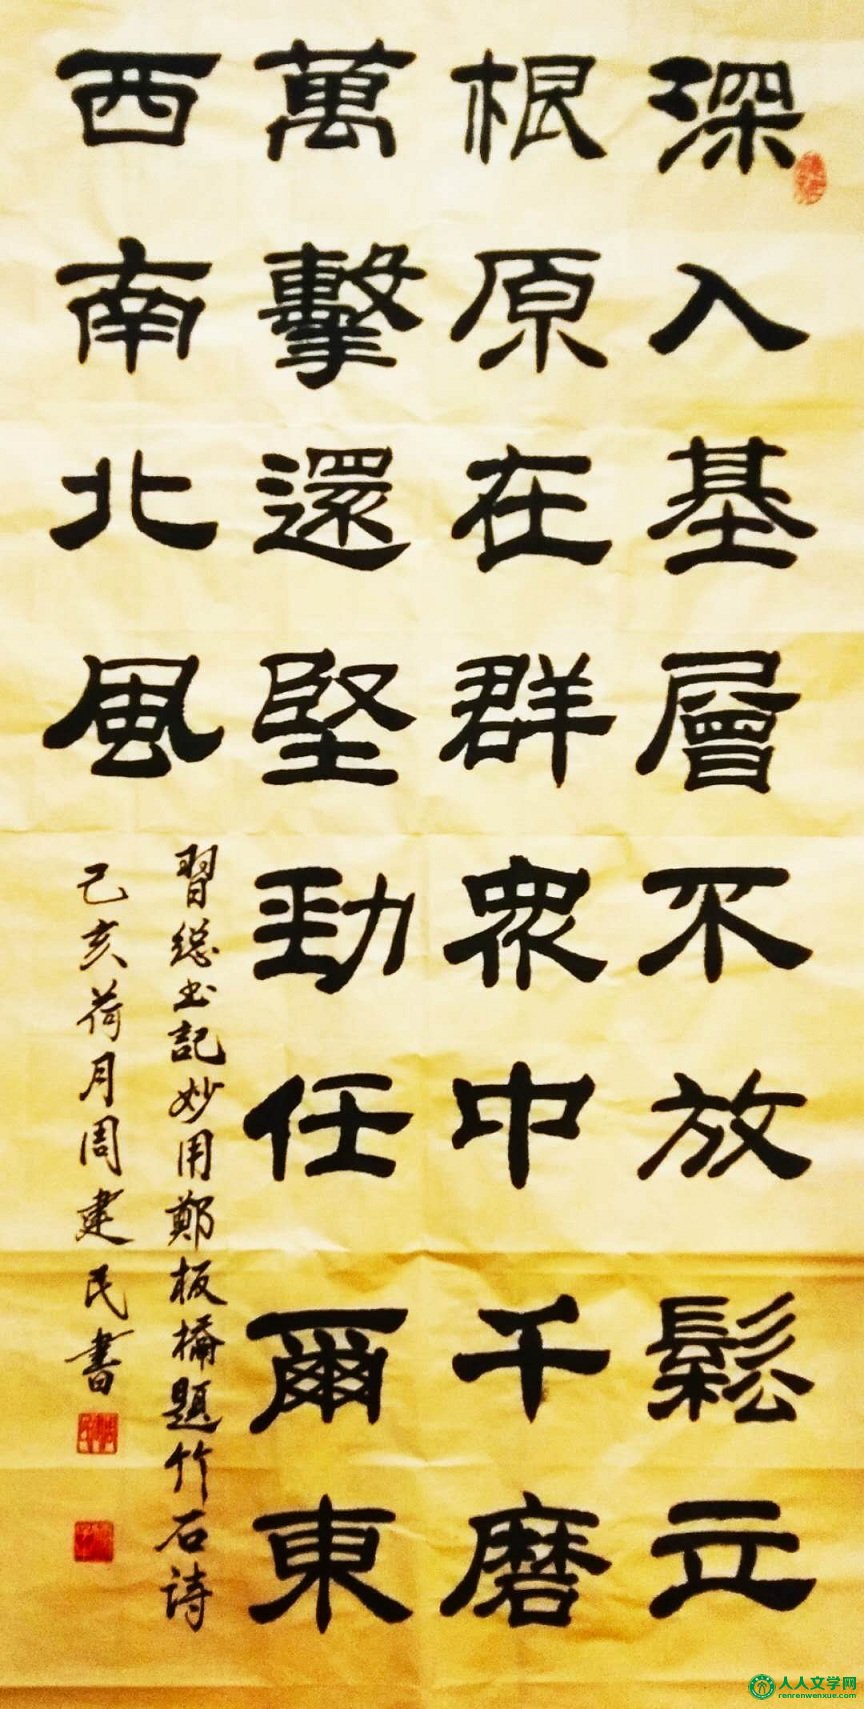 深入基層不放鬆立
根原在群眾中千磨
萬擊還堅勁任爾東
西南北風
習總书記妙用鄭板橋題竹石诗
己亥荷月周建民書
人人文学网
renrenwenxue.com